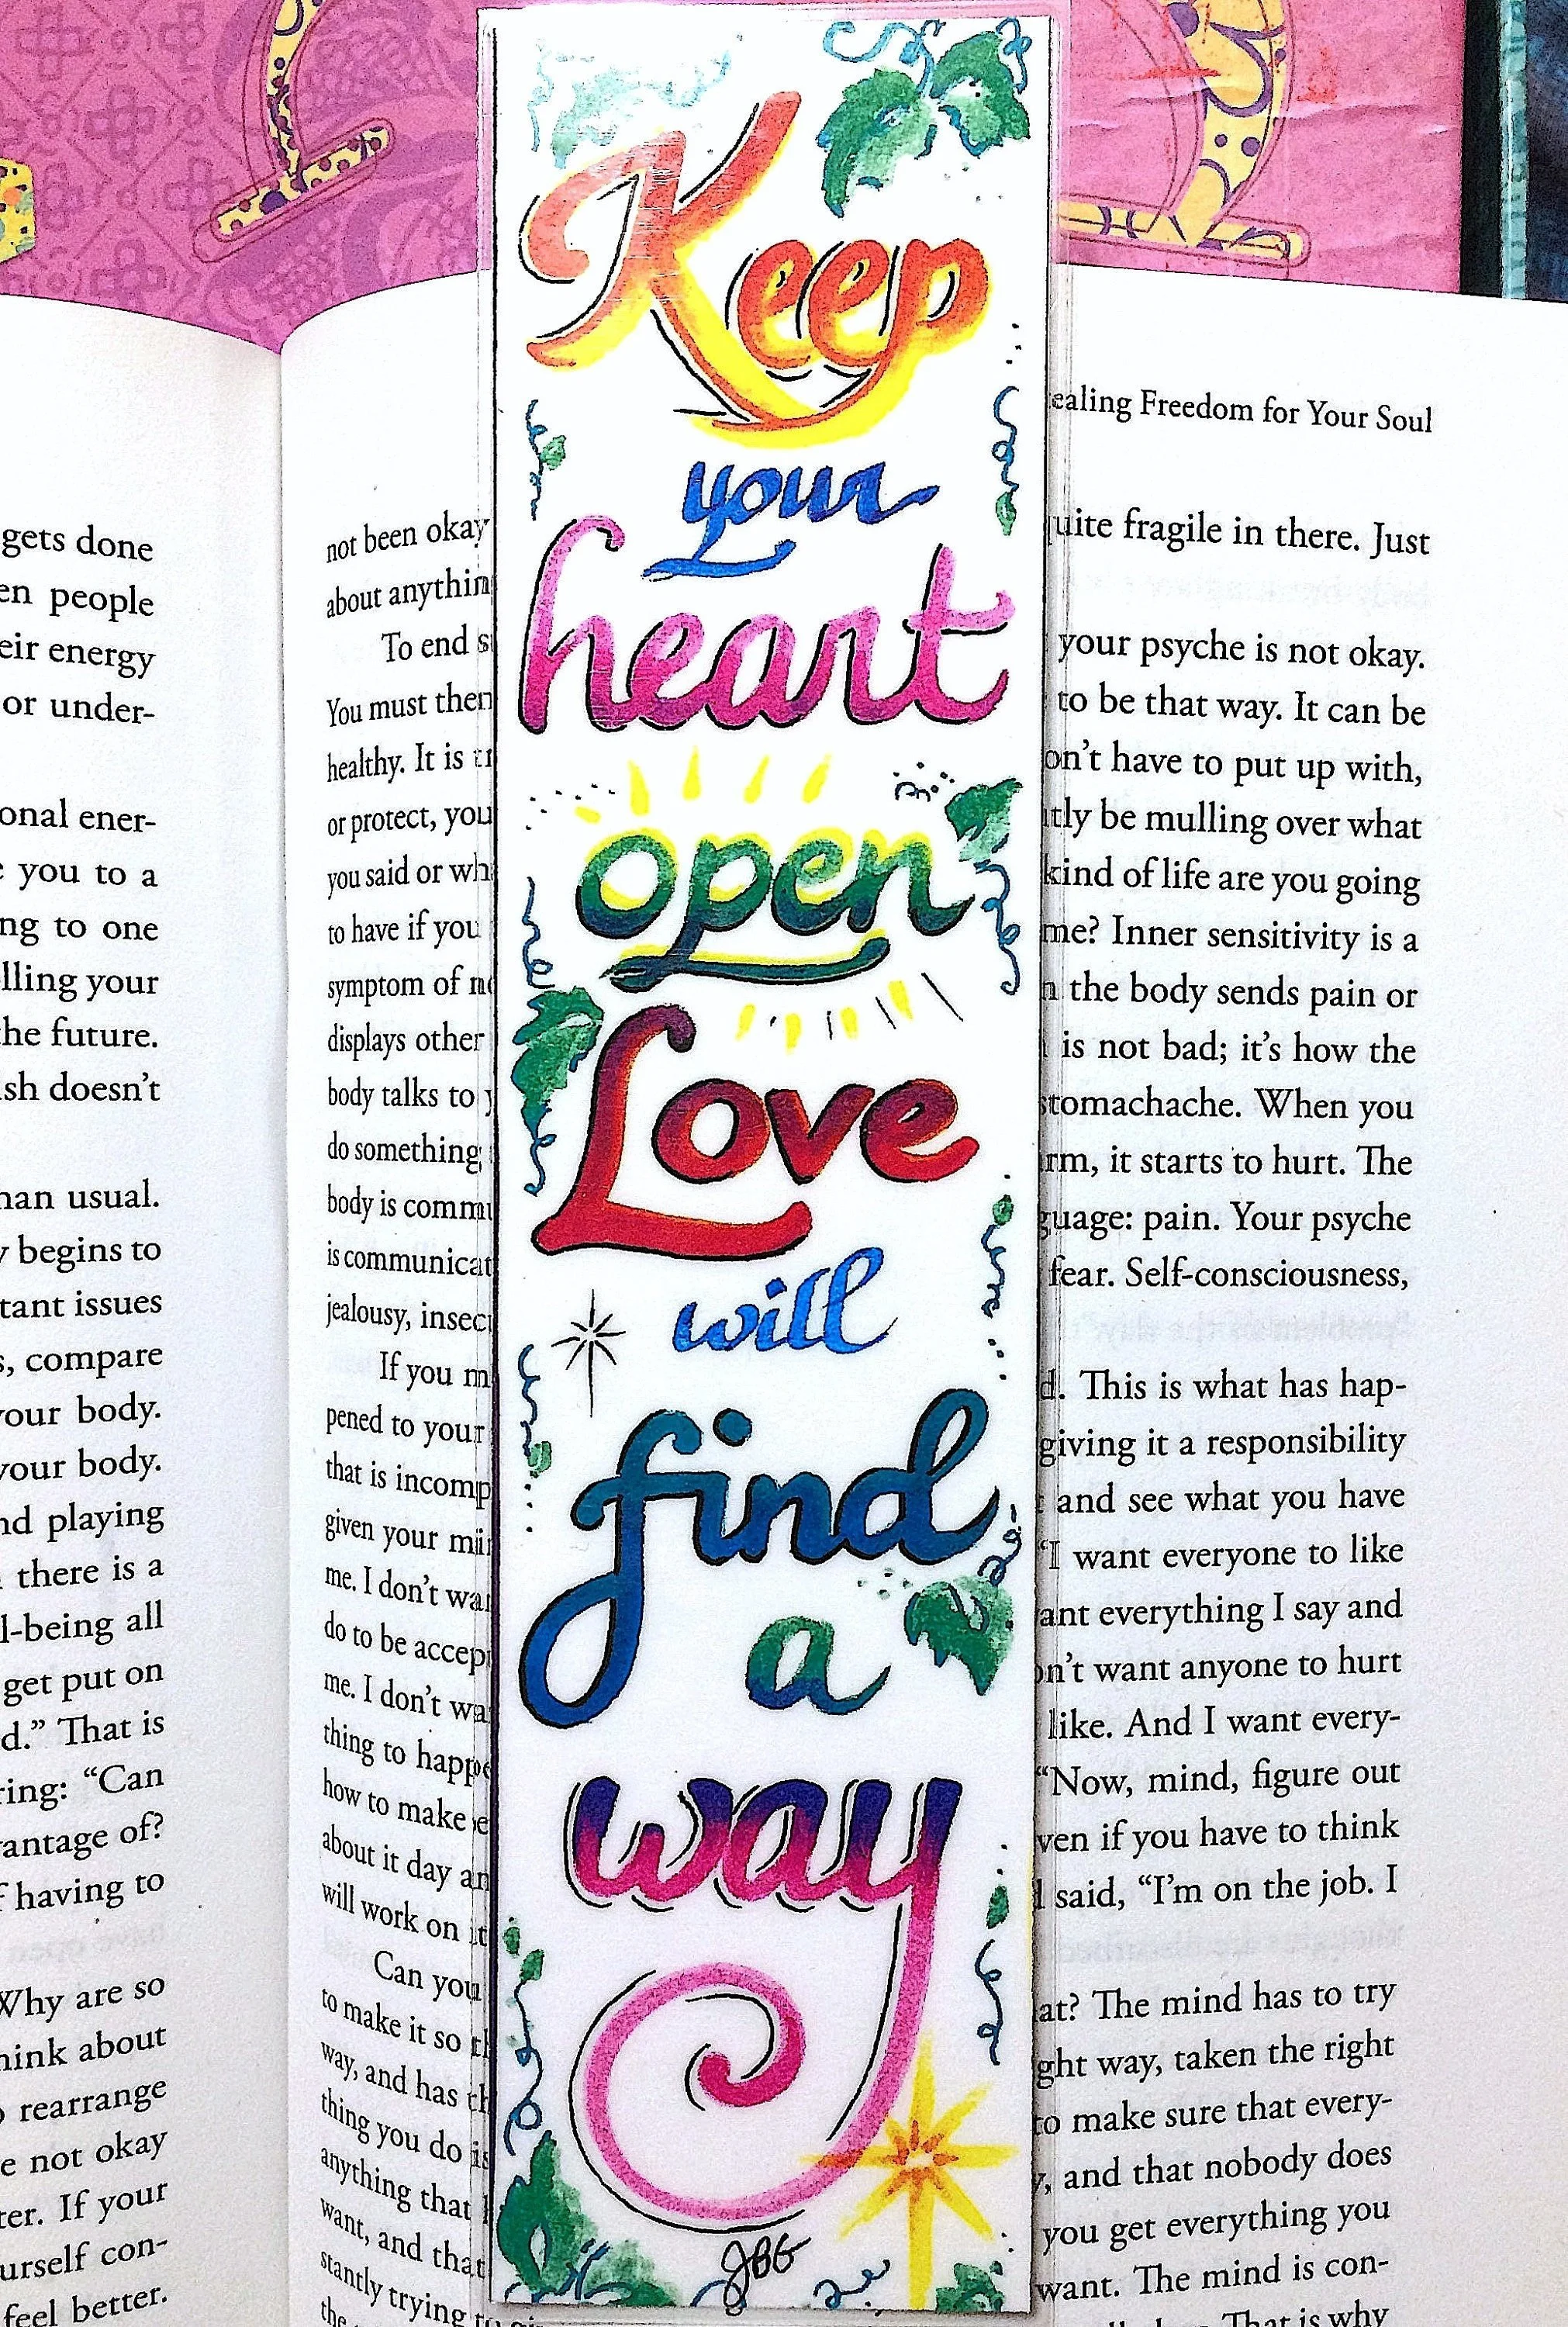 Keep
your
heart
open
Love
will
find
a
way
JBG
gets done
people
energy
or under-
ener-
you to a
to one
your
the future.
doesn't
usual.
begins to
issues
compare
your body.
your body.
playing
there is a
all
get put on
That is
"Can
of?
having to
Why are so
think about
rearrange
not okay
If your
con-
feel better.
ealing Freedom for Your Soul
not been okay
about
To end
You must then
healthy. It is
or protect, you
you said or
to have if you
symptom of
displays other
body talks to
do something
body is
is
jealousy,
If you
pened to your
that is
given your
me. I don't
do to be
me. I don't
thing to
how to make
about it day
will work on
Can you
to make it so
way, and has
thing you do
anything that
want, and that
stantly trying
the
quite fragile in there. Just
your psyche is not okay.
to be that way. It can be
don't have to put up with,
be mulling over what
kind of life are you going
me? Inner sensitivity is a
the body sends pain or
is not bad; it's how the
stomachache. When you
it starts to hurt. The
pain. Your psyche
fear. Self-consciousness,
This is what has hap-
giving it a responsibility
and see what you have
"I want everyone to like
want everything I say and
don't want anyone to hurt
like. And I want every-
"Now, mind, figure out
even if you have to think
said, "I'm on the job. I
The mind has to try
way, taken the right
to make sure that every-
and that nobody does
you get everything you
want. The mind is con-
That is why